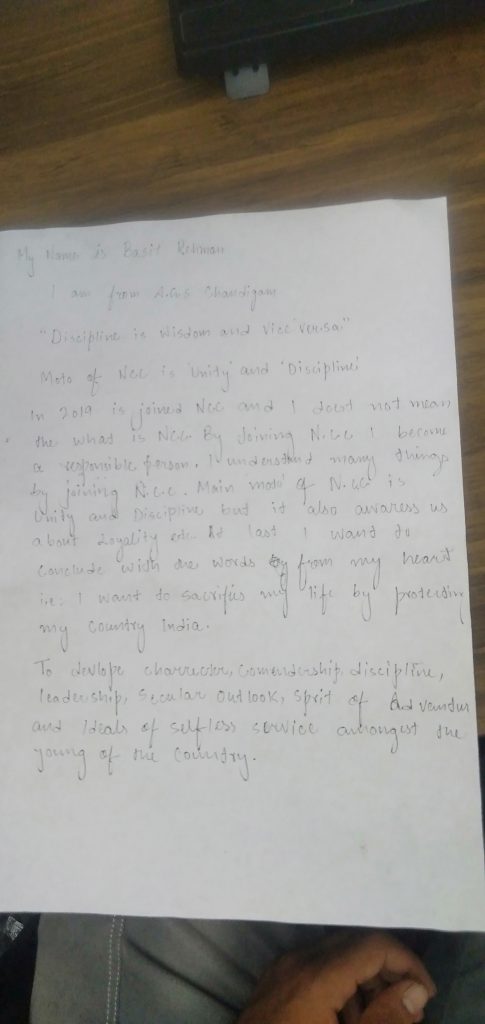 My Name is Basit Rehman
I am from A.G.S Chandigam
"Discipline is Wisdom and vice versa."
Moto of Ncc is 'Unity' and 'Discipline'
In 2019 is joined Ncc and I doest not mean
the what is Ncc. By Joining N.c.c I become
a responsible person. I understand many things
by joining N.c.c. Main moto of N.cc is
Unity and Discipline but it also awaress us
about Loyality etc.. At last I want to
Conclude with one words by from my heart
i.e: I want to sacrifies my life by protecting
my country India.
To devlope charrecter, Comendership, discipline,
leadership, Secular Outlook, Sprit of Advendur
and Ideals of selfless service amongst the
young of the Country.